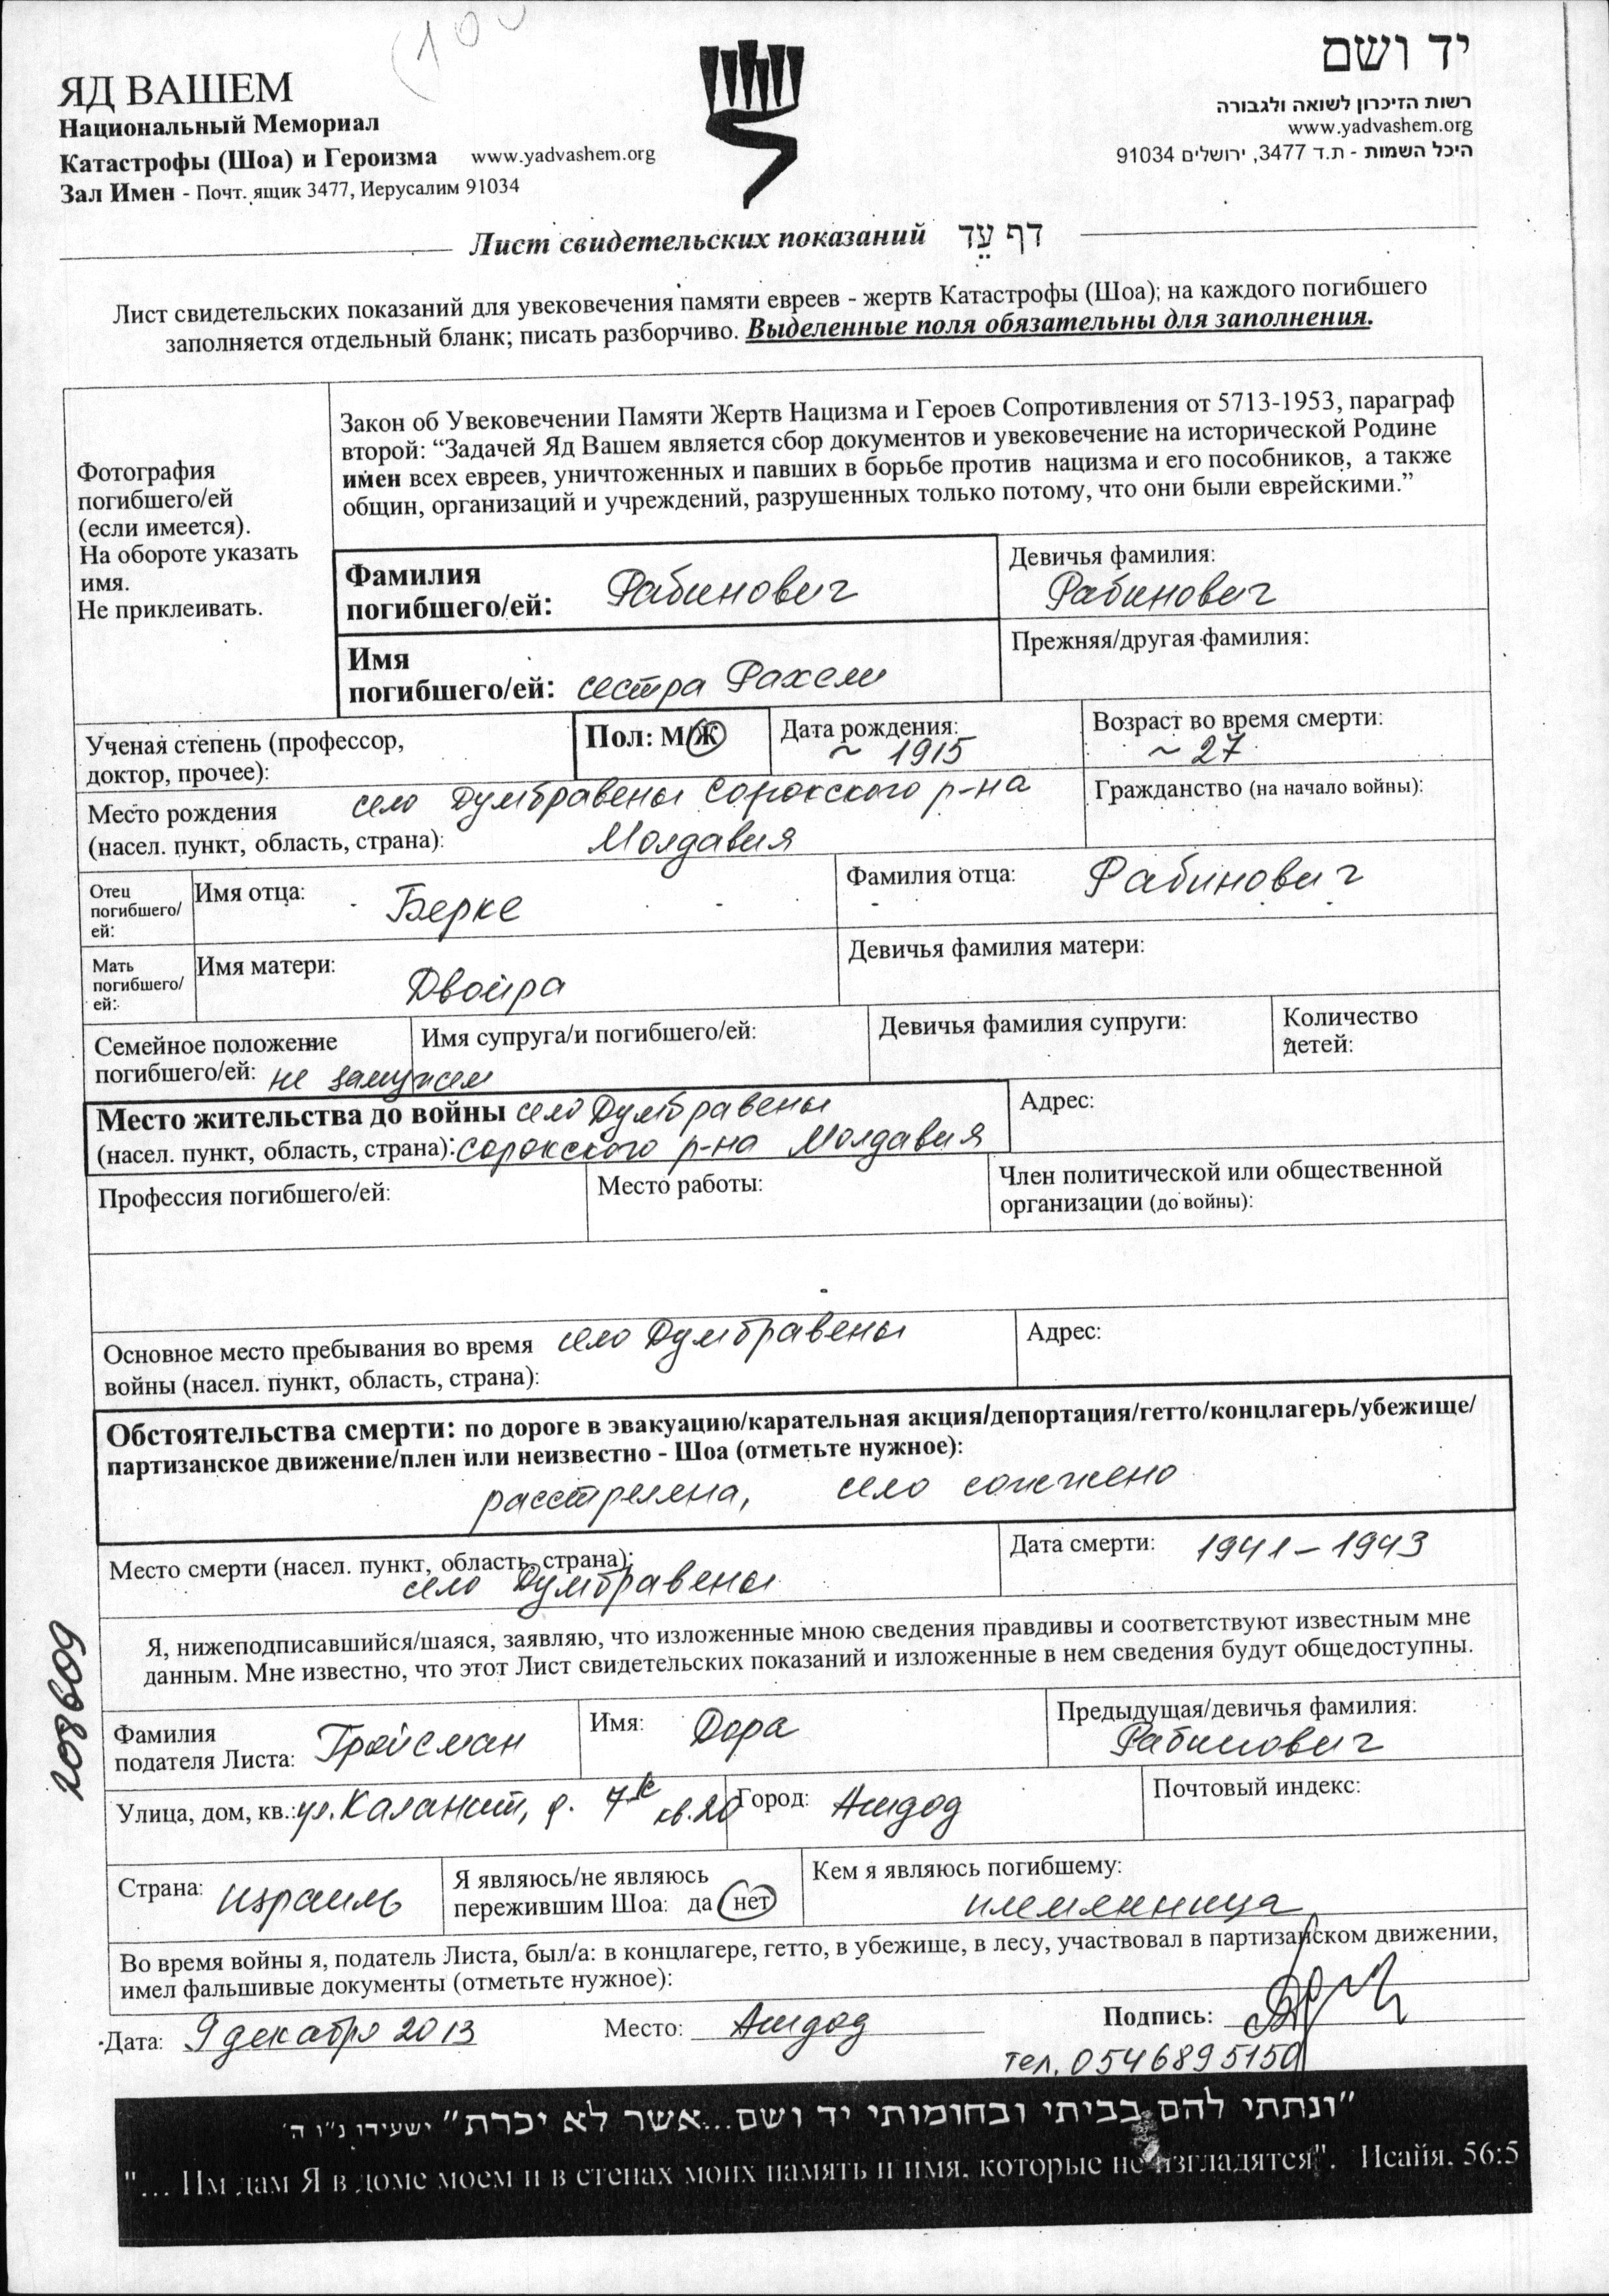 (100
ЯД ВАШЕМ
Национальный Мемориал
Катастрофы (Шоа) и Героизма www.yadvashem.org
Зал Имен - Почт. ящик 3477, Иерусалим 91034
יד ושם
רשות הזיכרון לשואה ולגבורה
www.yadvashem.org
היכל השמות - ת.ד 3477, ירושלים 91034
Лист свидетельских показаний דף עֵד
Лист свидетельских показаний для увековечения памяти евреев - жертв Катастрофы (Шоа); на каждого погибшего
заполняется отдельный бланк; писать разборчиво. Выделенные поля обязательны для заполнения.
Фотография
погибшего/ей
(если имеется).
На обороте указать
имя.
Не приклеивать.
Закон об Увековечении Памяти Жертв Нацизма и Героев Сопротивления от 5713-1953, параграф
второй: “Задачей Яд Вашем является сбор документов и увековечение на исторической Родине
имен всех евреев, уничтоженных и павших в борьбе против нацизма и его пособников, а также
общин, организаций и учреждений, разрушенных только потому, что они были еврейскими.”
Фамилия
погибшего/ей: Рабинович
Девичья фамилия:
Рабинович
Имя
погибшего/ей: сестра Рахели
Прежняя/другая фамилия:
Ученая степень (профессор,
доктор, прочее):
Пол: М/Ж
Дата рождения:
~ 1915
Возраст во время смерти:
~ 27
Место рождения село Думбравены Сорокского р-на
(насел. пункт, область, страна): Молдавия
Гражданство (на начало войны):
Отец
погибшего/
ей:
Имя отца: Берке
Фамилия отца: Рабинович
Мать
погибшего/
ей:
Имя матери: Двойра
Девичья фамилия матери:
Семейное положение
погибшего/ей: не замужем
Имя супруга/и погибшего/ей:
Девичья фамилия супруги:
Количество
детей:
Место жительства до войны село Думбравены
(насел. пункт, область, страна): Сорокского р-на Молдавия
Адрес:
Профессия погибшего/ей:
Место работы:
Член политической или общественной
организации (до войны):
Основное место пребывания во время село Думбравены
войны (насел. пункт, область, страна):
Адрес:
Обстоятельства смерти: по дороге в эвакуацию/карательная акция/депортация/гетто/концлагерь/убежище/
партизанское движение/плен или неизвестно - Шоа (отметьте нужное):
расстреляна, село сожжено
Место смерти (насел. пункт, область, страна):
село Думбравены
Дата смерти: 1941 – 1943
Я, нижеподписавшийся/шаяся, заявляю, что изложенные мною сведения правдивы и соответствуют известным мне
данным. Мне известно, что этот Лист свидетельских показаний и изложенные в нем сведения будут общедоступны.
208609
Фамилия
подателя Листа: Гройсман
Имя: Дора
Предыдущая/девичья фамилия:
Рабинович
Улица, дом, кв.: ул. Каланит, д. 7 кв. 20
Город: Ашдод
Почтовый индекс:
Страна: Израиль
Я являюсь/не являюсь
пережившим Шоа: да нет
Кем я являюсь погибшему:
племянница
Во время войны я, податель Листа, был/а: в концлагере, гетто, в убежище, в лесу, участвовал в партизанском движении,
имел фальшивые документы (отметьте нужное):
Дата: 9 декабря 2013 Место: Ашдод Подпись:
тел. 0546895150
"ונתתי להם בביתי ובחומותי יד ושם...אשר לא יכרת" ישעיהו נ"ו ה'
"... Им дам Я в доме моем и в стенах моих память и имя, которые не изгладятся". Исайя, 56:5